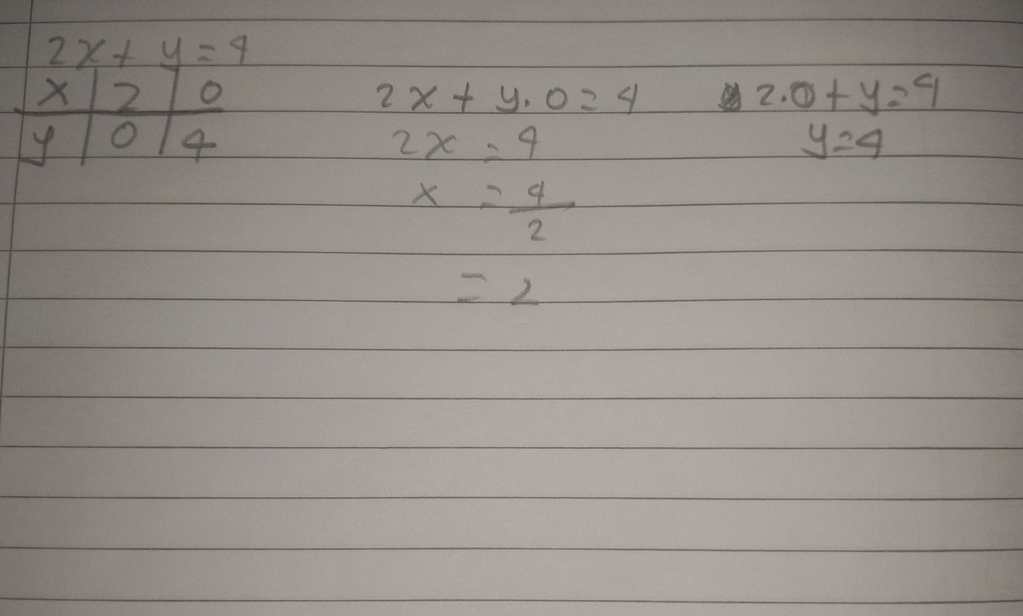 2x + y = 4
x | 2 | 0
y | 0 | 4
2x + y.0 = 4
2x = 4
x = 4/2
= 2
2.0 + y = 4
y = 4